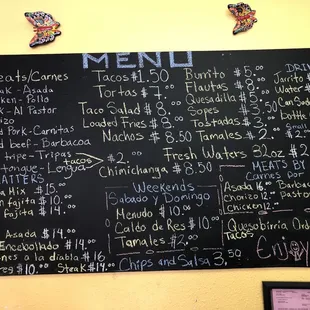 MENU
eats/Carnes
ak - Asada
cken - Pollo
k - Al Pastor
izo
d Pork - Carnitas
d beef - Barbacoa
tripe - Tripas
tongue - Lengua
tacos
$2.00
ATTERS
a Mix $15.00
n fajita $
fajita $14.00
Asada $14.00
Encebollado $14.00
nes a la diabla $16
$10.00 Steak $14.00
Tacos $1.50
Tortas $7.00
Taco Salad $8.00
Loaded Fries $8.00
Nachos 8.50
Chimichanga $8.50
Weekends
Sabado y Domingo
Menudo $10.00
Caldo de Res $10.00
Tamales $2.00
Chips and Salsa 3.50
Burrito $
Flautas $8.00
Quesadilla $
Sopes
Tostadas $
Tamales $2.00
Fresh Waters 32oz $2
DRIN
Jarrito $
Water $
Can Soda
bottle
Small
MEATS BY
Carnes por
Asada 16.00 Barbac
Choizo 12.00 Pastor
Chicken 12.00
Quesobirria Ord
Tacos
Enjoy